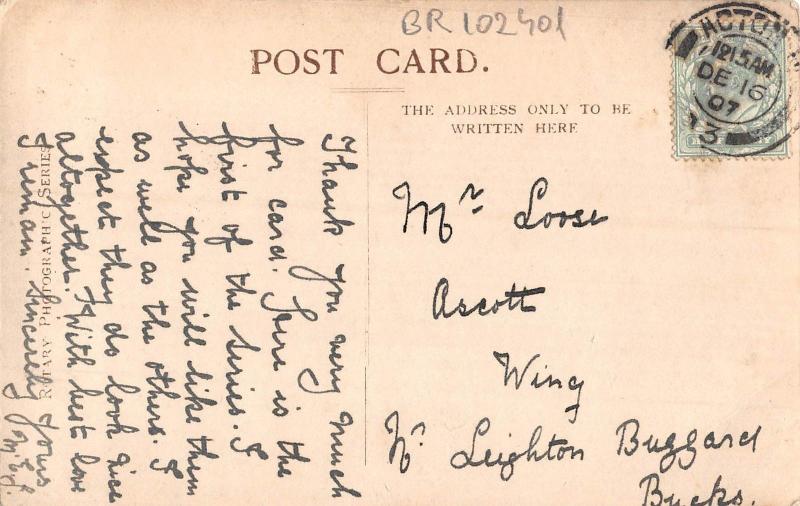 BR102401
POST CARD.
THE ADDRESS ONLY TO BE
WRITTEN HERE
ACTON
1215AM
DE 16
07
13
Thank you very much
for card. Here is the
first of the series. I
hope you will like them
as well as the others. I
expect they do look nice
altogether. With best love
I remain. Sincerely yours
ROTARY PHOTOGRAPHIC SERIES
Mr Loose
Ascott
Wing
Nr Leighton Buggard
Bucks.